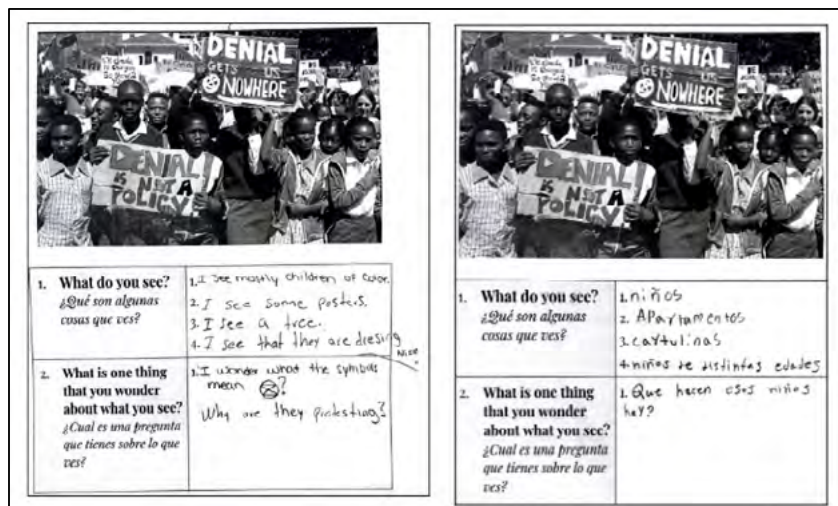 DENIAL
GETS US
NOWHERE
DENIAL
IS NOT A
POLICY!
1. What do you see?
¿Qué son algunas
cosas que ves?
1. I see mostly children of color.
2. I see some posters.
3. I see a tree.
4. I see that they are dresing
Nice.
2. What is one thing
that you wonder
about what you see?
¿Cual es una pregunta
que tienes sobre lo que
ves?
1. I wonder what the symbols
mean ?
Why are they protesting?
DENIAL
GETS US
NOWHERE
DENIAL
IS NOT A
POLICY!
1. What do you see?
¿Qué son algunas
cosas que ves?
1. niños
2. APartamentos
3. cartulinas
4. niños de distintas edades
2. What is one thing
that you wonder
about what you see?
¿Cual es una pregunta
que tienes sobre lo que
ves?
1. Que hacen esos niños
hay?